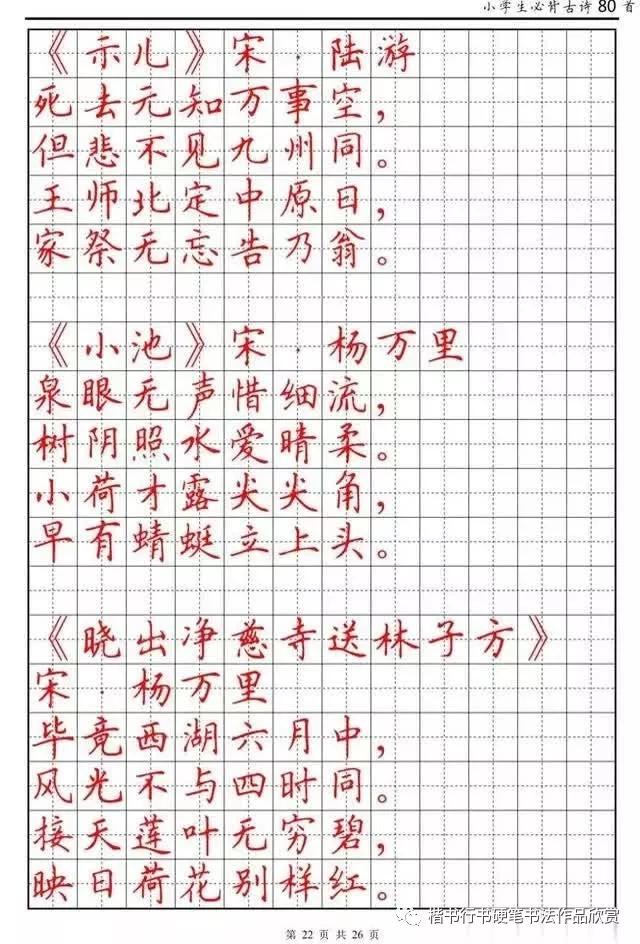 小学生必背古诗 80 首
《示儿》宋·陆游
死去元知万事空，
但悲不见九州同。
王师北定中原日，
家祭无忘告乃翁。
《小池》宋·杨万里
泉眼无声惜细流，
树阴照水爱晴柔。
小荷才露尖尖角，
早有蜻蜓立上头。
《晓出净慈寺送林子方》
宋·杨万里
毕竟西湖六月中，
风光不与四时同。
接天莲叶无穷碧，
映日荷花别样红。
楷书行书硬笔书法作品欣赏
第 22 页 共 26 页